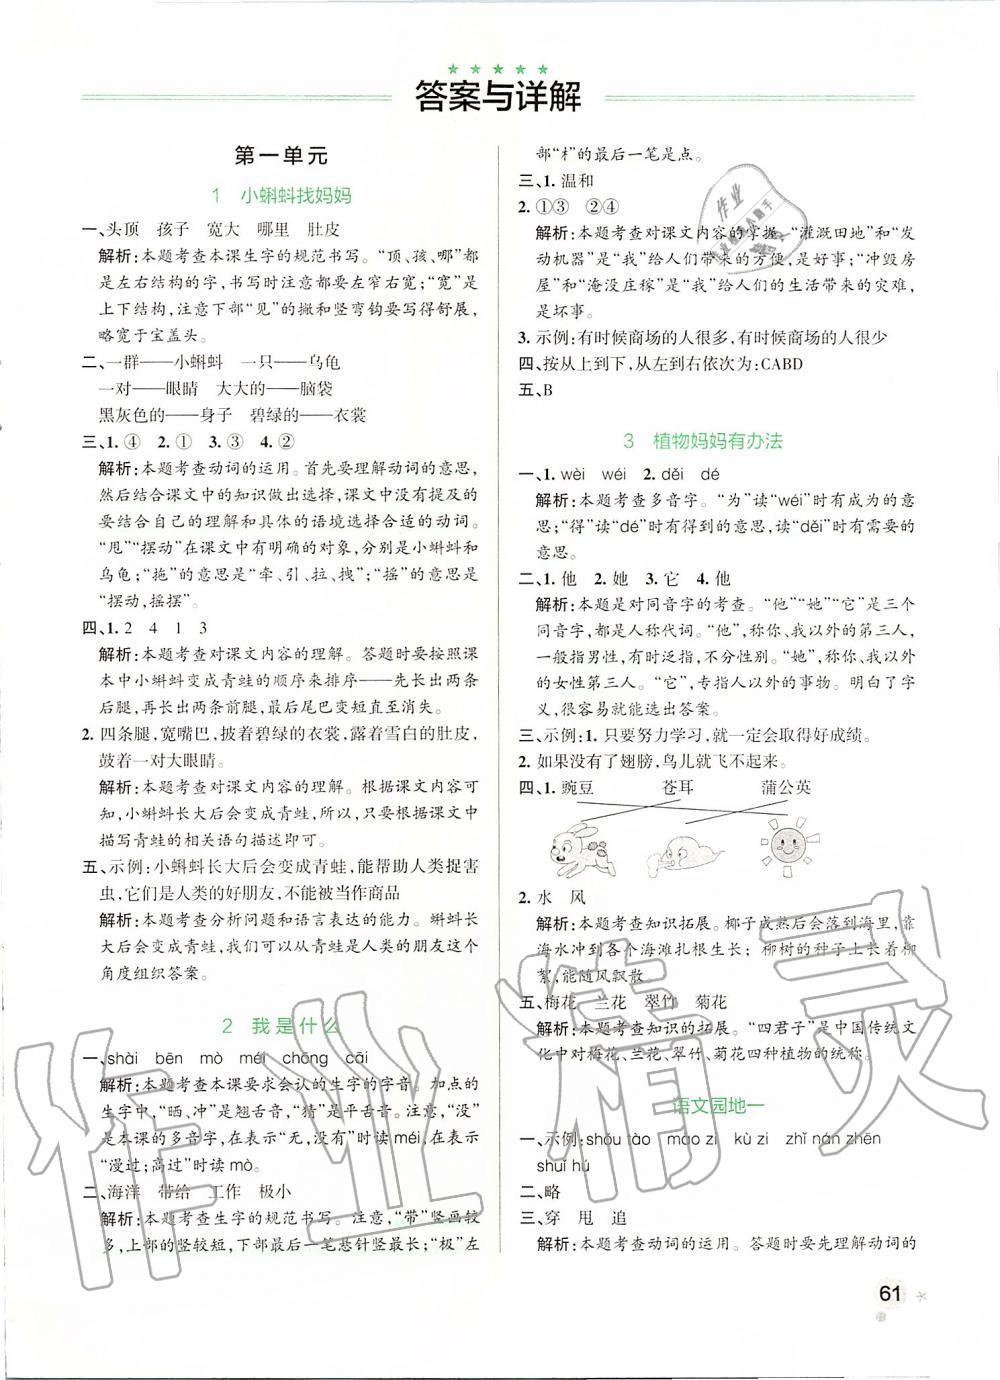 答案与详解
第一单元
1 小蝌蚪找妈妈
一、头顶 孩子 宽大 哪里 肚皮
解析:本题考查本课生字的规范书写。“顶、孩、哪”都
是左右结构的字，书写时注意都要左窄右宽;“宽”是
上下结构，注意下部“见”的撇和竖弯钩要写得舒展，
略宽于宝盖头。
二、一群——小蝌蚪 一只——乌龟
一对——眼睛 大大的——脑袋
黑灰色的——身子 碧绿的——衣裳
三、1.④ 2.① 3.③ 4.②
解析:本题考查动词的运用。首先要理解动词的意思，
然后结合课文中的知识做出选择，课文中没有提及的
要结合自己的理解和具体的语境选择合适的动词。
“甩”“摆动”在课文中有明确的对象，分别是小蝌蚪和
乌龟;“拖”的意思是“牵、引、拉、拽”;“摇”的意思是
“摆动,摇摆”。
四、1. 2 4 1 3
解析:本题考查对课文内容的理解。答题时要按照课
本中小蝌蚪变成青蛙的顺序来排序——先长出两条
后腿，再长出两条前腿，最后尾巴变短直至消失。
2. 四条腿，宽嘴巴，披着碧绿的衣裳，露着雪白的肚皮，
鼓着一对大眼睛。
解析:本题考查对课文内容的理解。根据课文内容，
小蝌蚪长大后会变成青蛙，所以，只要根据课文中
描写青蛙的相关语句描述即可。
五、示例:小蝌蚪长大后会变成青蛙，能帮助人类捉害
虫，它们是人类的好朋友，不能被当作商品
解析:本题考查分析问题和语言表达的能力。蝌蚪长
大后会变成青蛙，我们可以从青蛙是人类的朋友这个
角度组织答案。
2 我是什么
一、shài bēn mò méi chōng cāi
解析:本题考查本课要求会认的生字的字音。加点的
生字中，“晒、冲”是翘舌音，“猜”是平舌音。注意，“没”
是本课的多音字，在表示“无，没有”时读méi，在表示
“漫过;高过”时读mò。
二、海洋 带给 工作 极小
解析:本题考查生字的规范书写。注意，“带”竖画较
多，上部的竖较短，下部最后一笔悬针竖最长;“极”左
部“木”的最后一笔是点。
三、1.温和
2.①③ ②④
解析:本题考查对课文内容的掌握。“灌溉田地”和“发
动机器”是“我”给人们带来的方便，是好事;“冲毁房
屋”和“淹没庄稼”是“我”给人们的生活带来的灾难，
是坏事。
3.示例:有时候商场的人很多，有时候商场的人很少
四、按从上到下，从左到右依次为:CABD
五、B
3 植物妈妈有办法
一、1. wèi wéi 2. děi dé
解析:本题考查多音字。“为”读“wéi”时有成为的意
思;“得”读“dé”时有得到的意思，读“děi”时有需要的
意思。
二、1.他 2.她 3.它 4.他
解析:本题是对同音字的考查。“他”“她”“它”是三个
同音字，都是人称代词。“他”，称你、我以外的第三人，
一般指男性，有时泛指，不分性别。“她”，称你、我以外
的女性第三人。“它”，专指人以外的事物。明白了字
义，很容易就能选出答案。
三、示例:1.只要努力学习，就一定会取得好成绩。
2.如果没有了翅膀，鸟儿就飞不起来。
四、1.豌豆 苍耳 蒲公英
2.水 风
解析:本题考查知识拓展。椰子成熟后会落到海里，靠
海水冲到各个海滩扎根生长;柳树的种子上长着柳
絮，能随风飘散。
五、梅花 兰花 翠竹 菊花
解析:本题考查知识的拓展。“四君子”是中国传统文
化中对梅花、兰花、翠竹、菊花四种植物的统称。
语文园地一
一、示例:shóu tào mào zi kù zi zhǐ nán zhēn
shuǐ hú
二、略
三、穿 甩 追
解析:本题考查动词的运用。答题时要先理解动词的
61
作业精灵